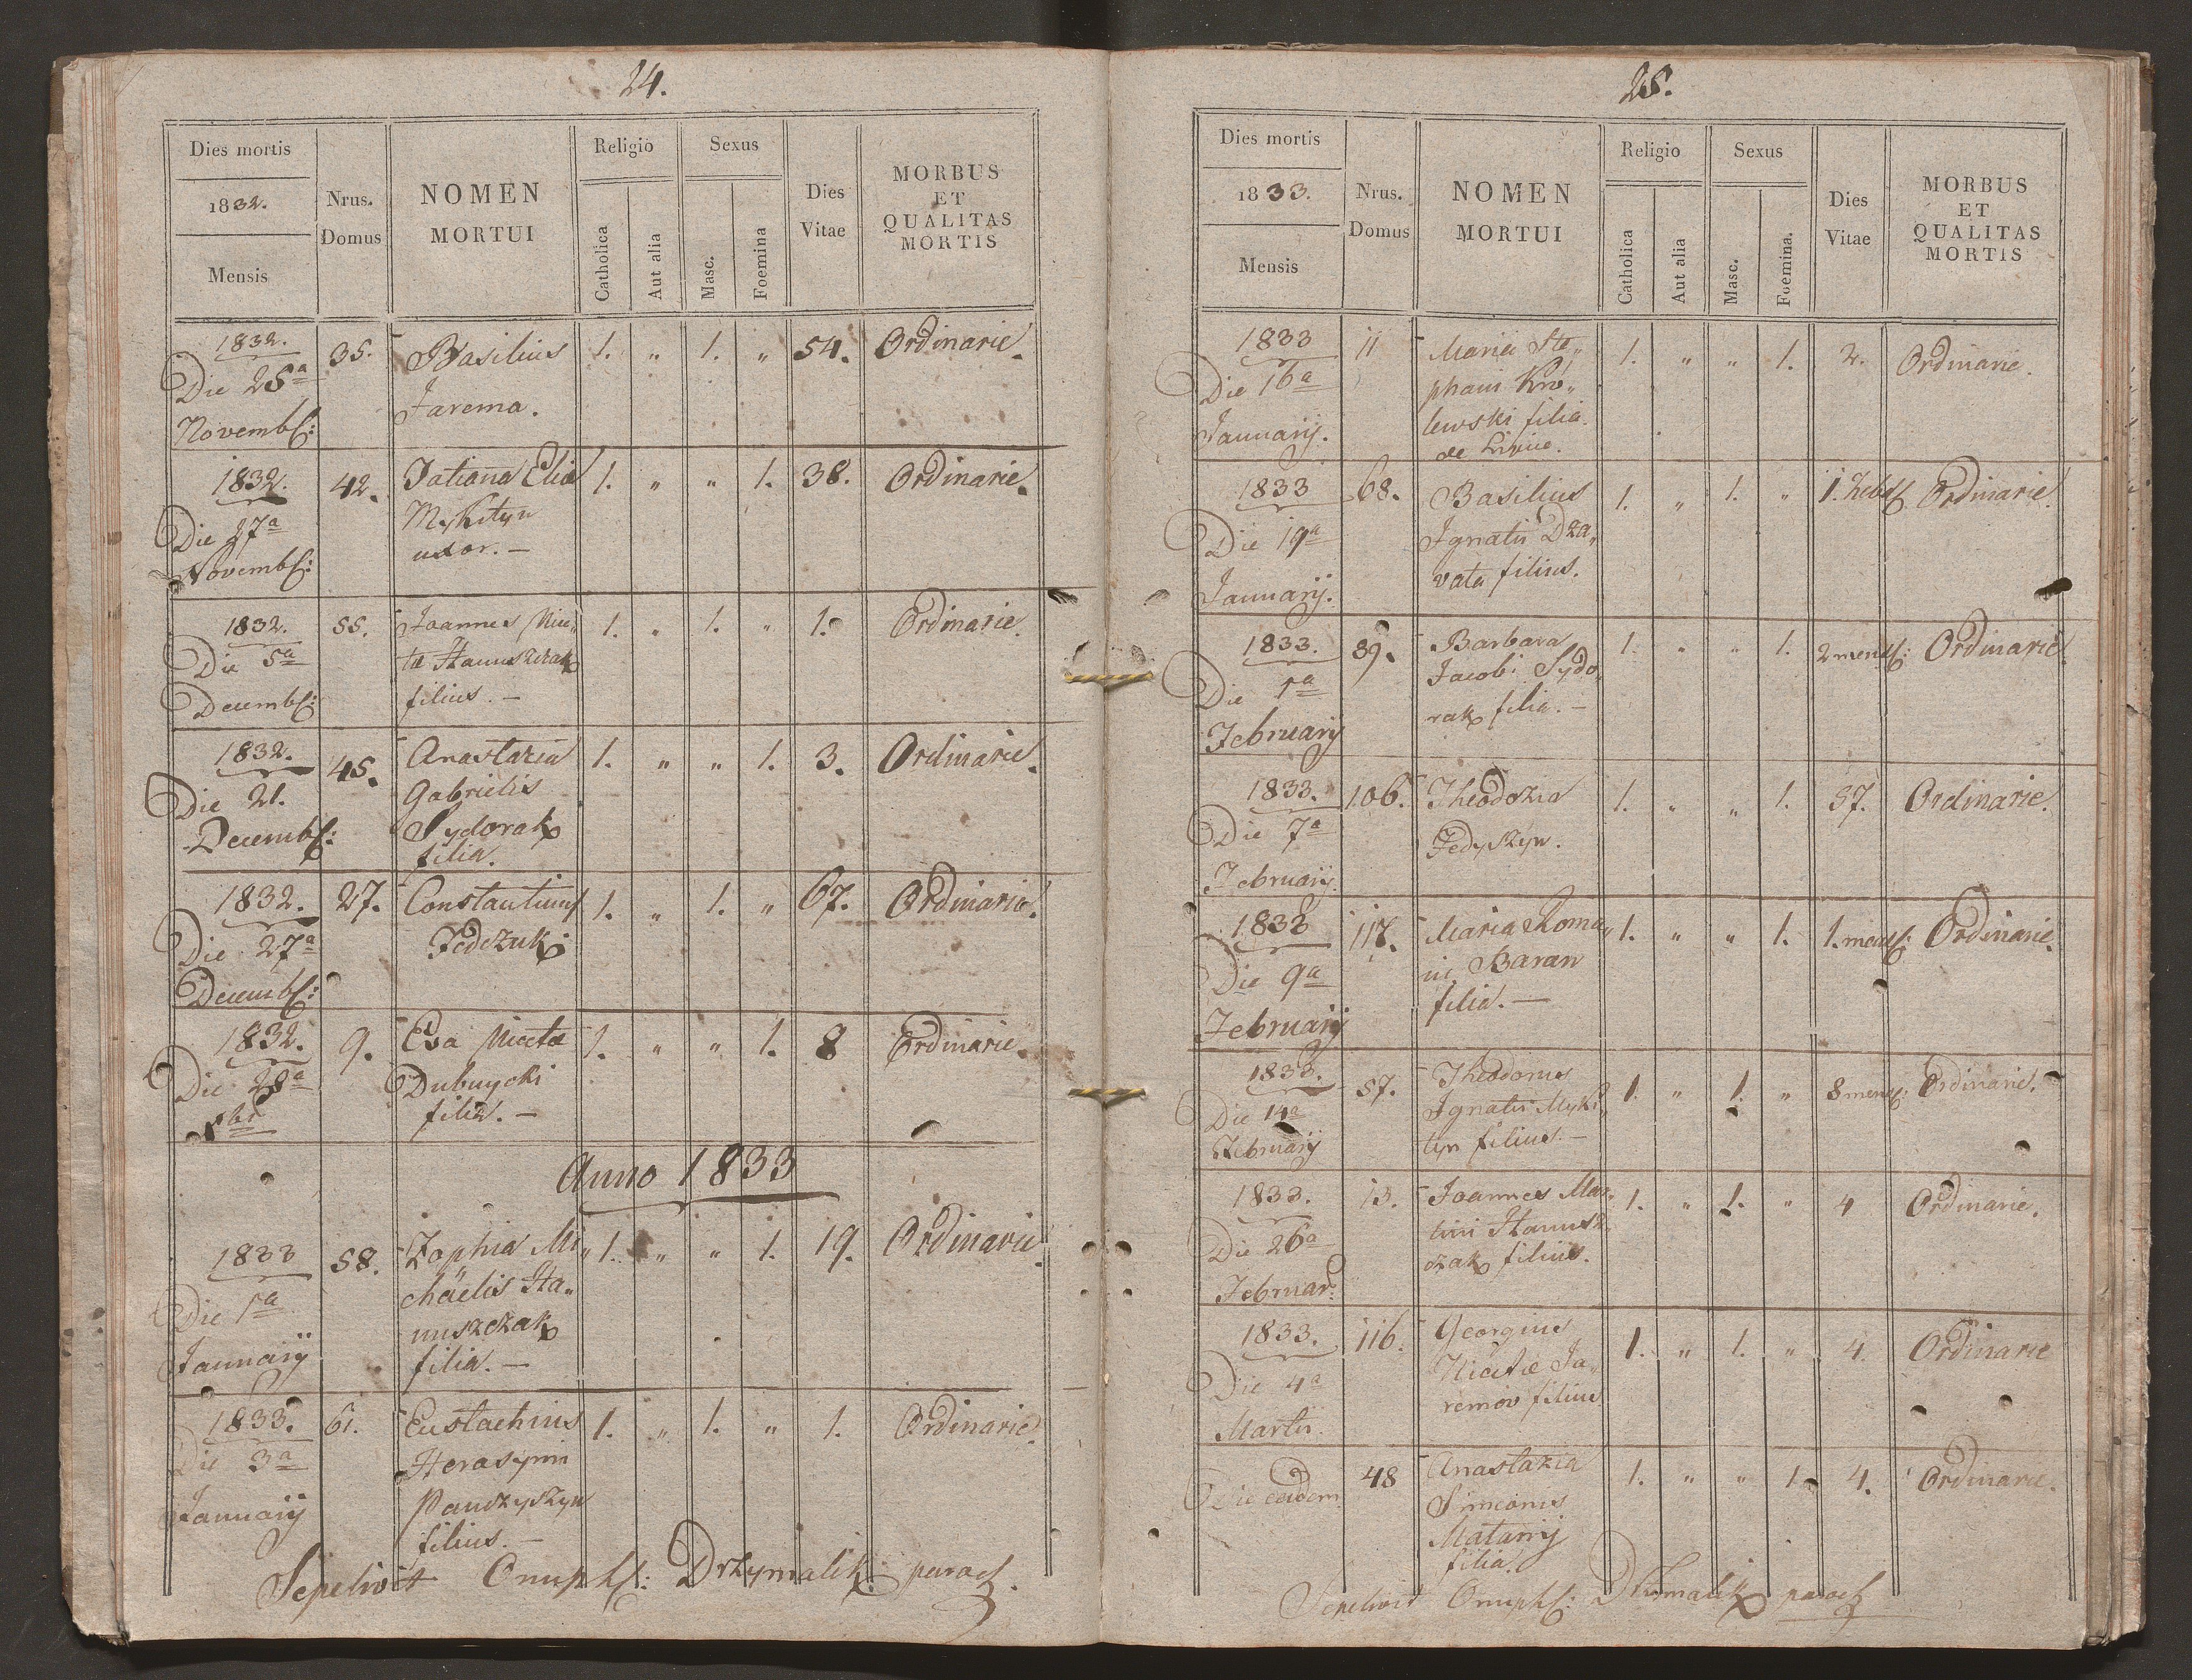 24.
Dies mortis
1832.
Mensis
Nrus.
Domus
NOMEN
MORTUI
Religio
Catholica
Aut alia
Sexus
Masc.
Foemina
Dies
Vitae
MORBUS
ET
QUALITAS
MORTIS
1832. 35. Basilius 1. " 1. " 54. Ordinarie.
Die 25a Jarema.
Novembr:
1832. 42. Tatiana Eliæ 1. " " 1. 38. Ordinarie.
Die 27a Mykityn
Novembr: uxor. —
1832. 55. Joannes Nice 1. " 1. " 1. Ordinarie.
Die 5a tæ Hanuszczak
Decembr: filius. —
1832. 45. Anastazia 1. " " 1. 3. Ordinarie.
Die 21. Gabrielis
Decembr: Sydorak
filia.
1832. 27. Constantinus 1. " 1. " 67. Ordinarie.
Die 27a Fedczuk
Decembr:
1832. 9. Eva Nicetæ 1. " " 1. 8 Ordinarie.
Die 28a Dubnycki
filia. —
Anno 1833
1833 58. Zophia Mi„ 1. " " 1. 19. Ordinarie.
Die 1a chaelis Ha„
Januarij nuszczak
filia. —
1833. 61. Eustachius 1. " 1. " 1. Ordinarie.
Die 3a Herasymi
Januarij Panczyszyn
filius. —
Sepelivit Onuphr: Drzymalik paroch.
25.
Dies mortis
1833.
Mensis
Nrus.
Domus
NOMEN
MORTUI
Religio
Catholica
Aut alia
Sexus
Masc.
Foemina.
Dies
Vitae
MORBUS
ET
QUALITAS
MORTIS
1833 11 Maria Ste„ 1. " " 1. 2. Ordinarie.
Die 16a phani Kró„
Januarij. lewski filia
de
1833 68. Basilius 1. " 1. " 1. hebd. Ordinarie.
Die 19a Ignatii Dza„
Januarij. vata filius.
1833. 89. Barbara 1. " " 1. 2 mens: Ordinarie.
Die 1a Jacobi Sydo„
Februarij rak filia. —
1833. 106. Theodozia 1. " " 1. 37. Ordinarie.
Die 7a Fedyszyn.
Februarij.
1833 117. Maria Roma„ 1. " " 1. 1. mens: Ordinarie.
Die 9a ni Baran
Februarij filia. —
1833. 57. Theodorus 1. " 1. " 8 mens: Ordinarie.
Die 14a Ignatii Myki„
Februarij tyn filius. —
1833. 13. Joannes Mar„ 1. " 1. " 4 Ordinarie.
Die 26a tini Hanusz„
Februar: czak filius.
1833. 116. Georgius 1. " 1. " 4. Ordinarie
Die 4a Nicetæ Ja„
Martii. remov filius
Die eadem 48 Anastazia 1. " " 1. 4. Ordinarie.
Simeonis
Matwij
filia.
Sepelivit Onuphr: paroch